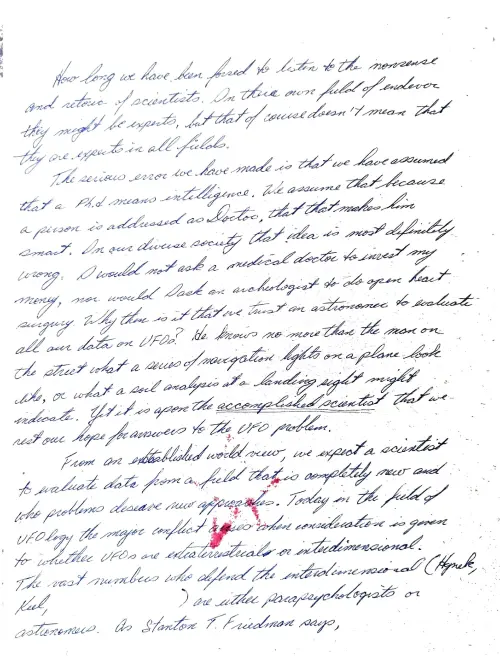 How long we have been forced to listen to the nonsense
and retoric of scientists. In there own field of endevor
they might be experts, but that of course doesn't mean that
they are experts in all fields.
The serious error we have made is that we have assumed
that a Ph.d means intelligence. We assume that because
a person is addressed as Doctor, that that makes him
smart. In our diverse society that idea is most difinitely
wrong. I would not ask a medical doctor to invest my
money, nor would I ask an archeologist to do open heart
surgury. Why then is it that we trust an astronomer to evaluate
all our data on UFOs? He knows no more than the man on
the street what a series of navigation lights on a plane look
like, or what a soil analysis at a landing sight might
indicate. Yet it is apon the accomplished scientist that we
rest our hope for answers to the UFO problem.
From an established world view, we expect a scientist
to evaluate data from a field that is completely new and
who problems deserve new approaches. Today in the field of
UFOlogy the major conflict arises when consideration is given
to whether UFOs are extraterrestrials or interdimensional.
The vast numbers who defend the interdimensional (Hynek,
Keel, ) are either parapsychologists or
astronomers. As Stanton T. Friedman says,